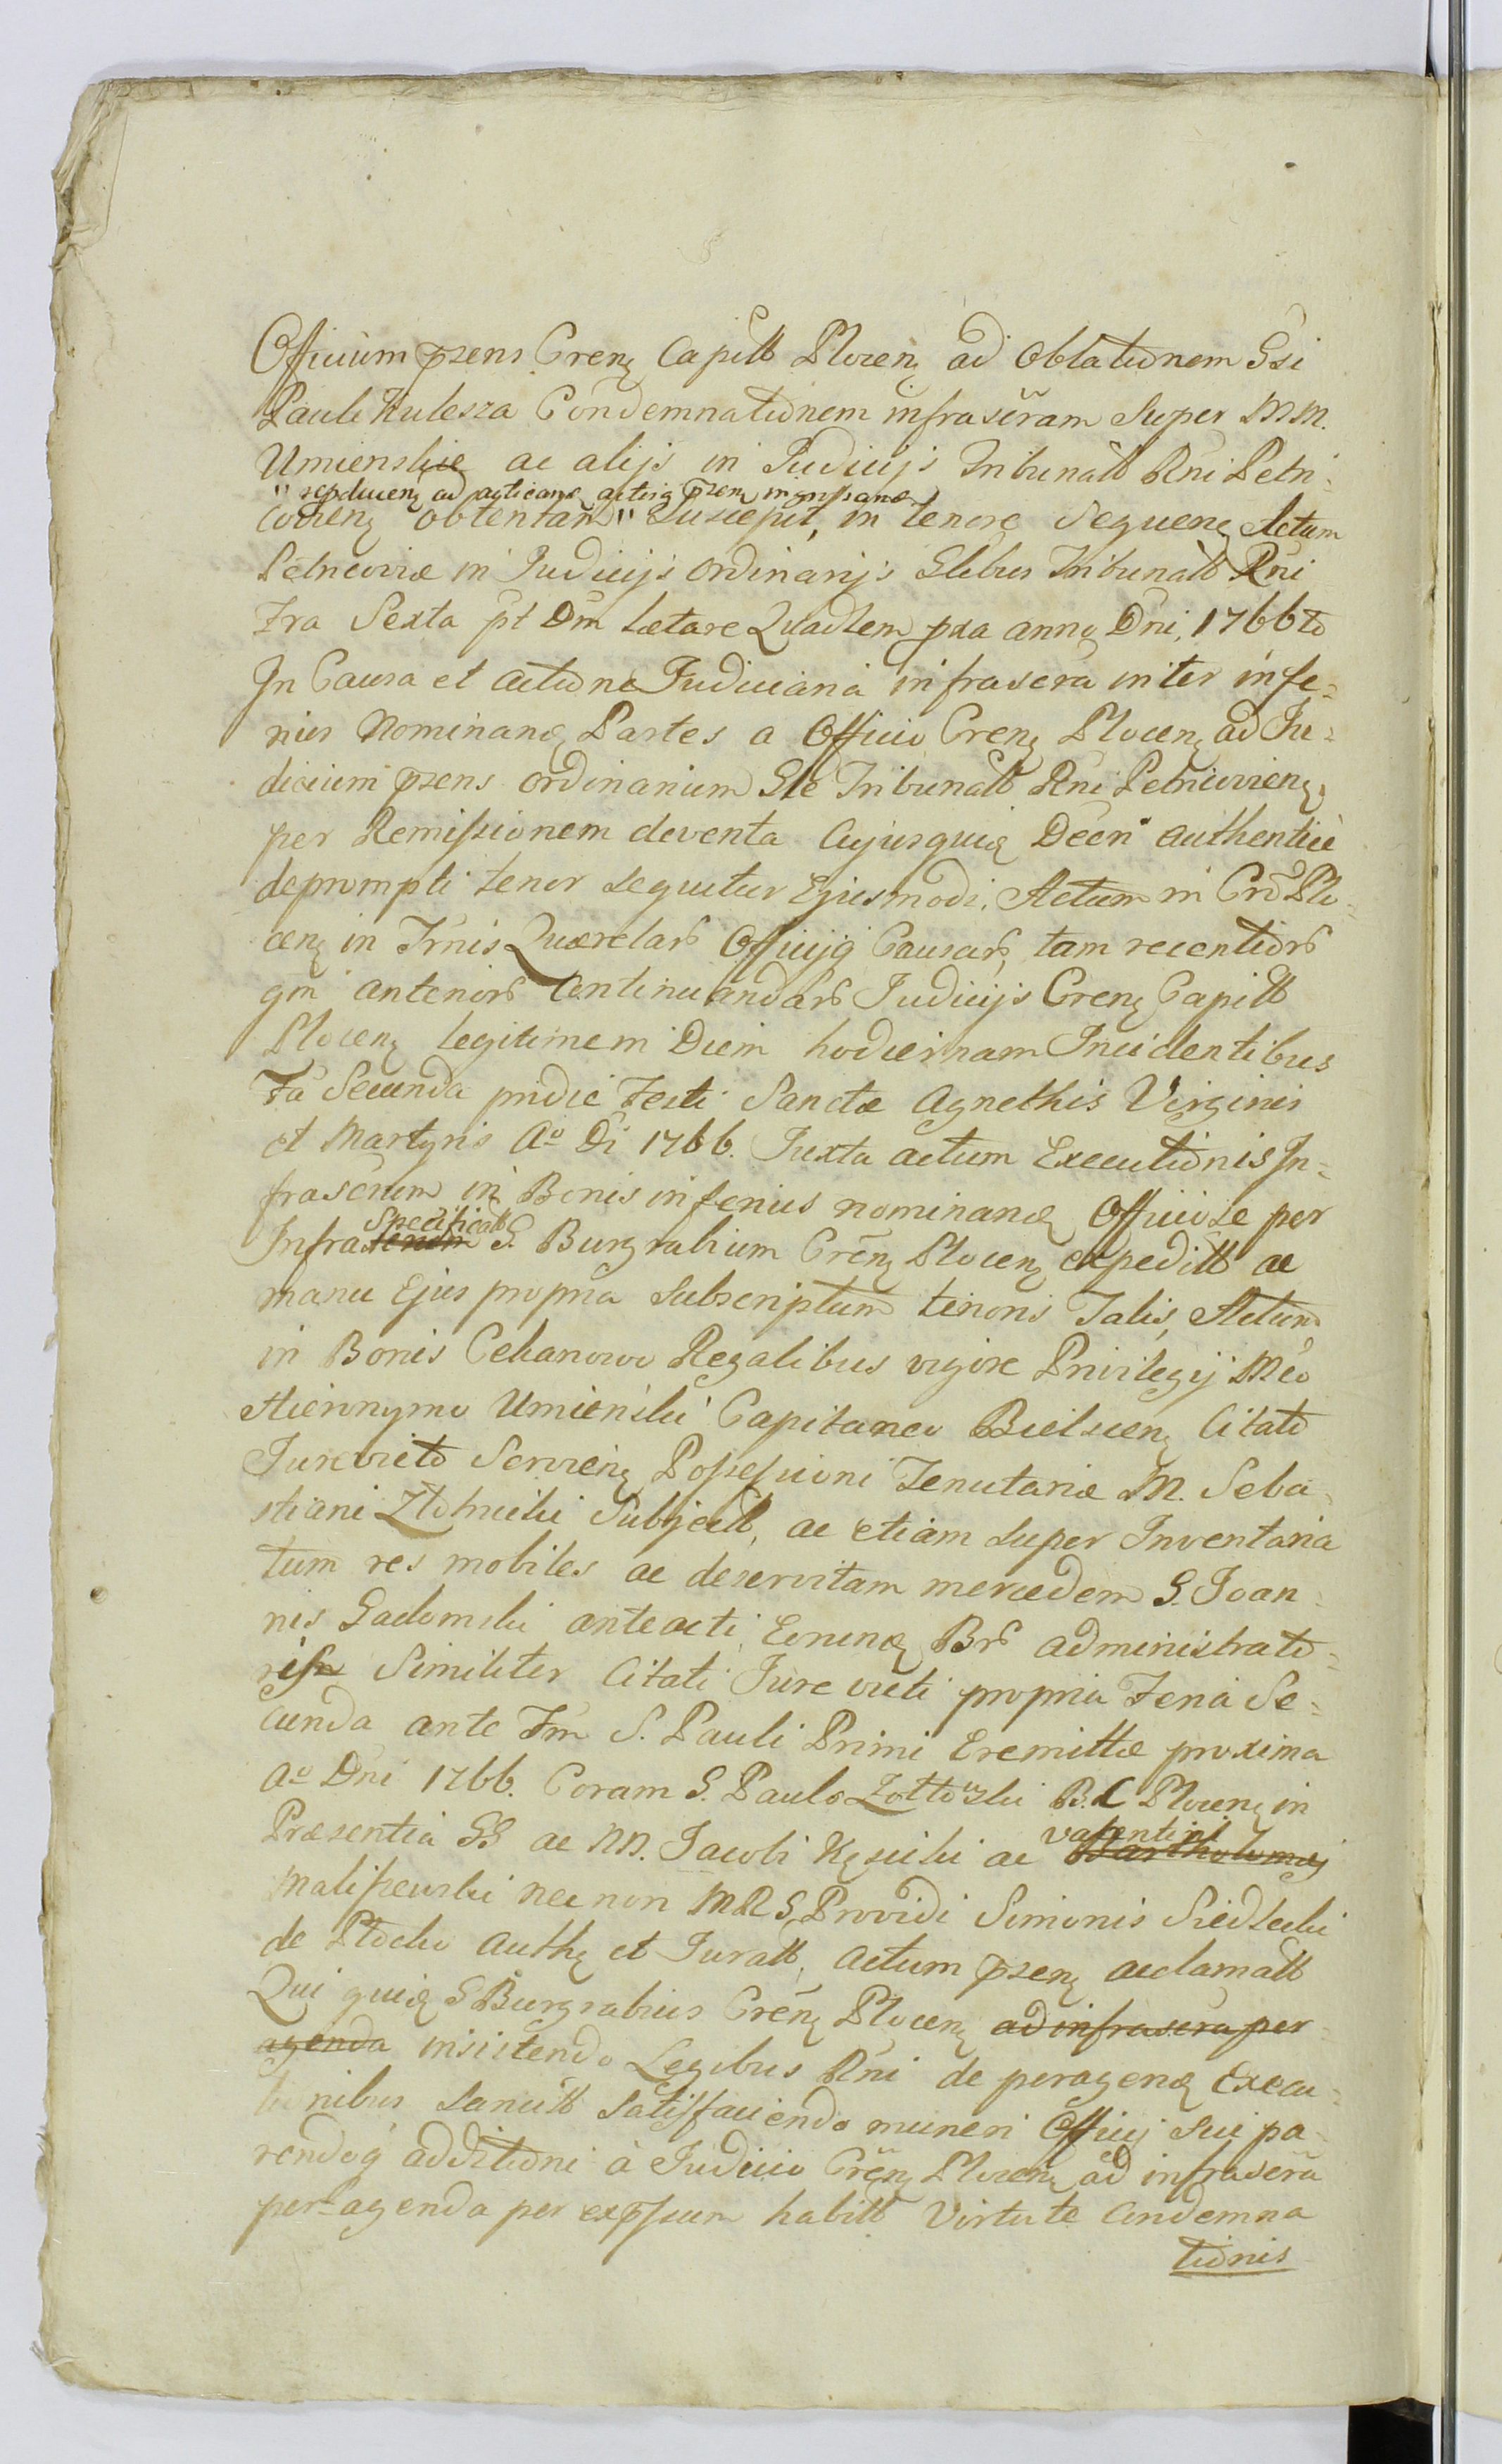 Officium pzens Crenȩ Capitt Plocenȩ ad Oblationem Gsi
Pauli Kulesza Condemnationem infrascram super MM.
Umienskie ac alijs in Judicijs Tribunatt Rni Petri-
" repducenȩ ad acticanȩ actisq pzenȩ ingrossanȩ
covienȩ obtentam " Suscepit, in tenore Sequenȩ Actum
Petricoviæ in Judicijs Ordinarijs Glibus Tribunatt Rni
Fra Sexta pt Dm Lætare Quadlem pxa anno Dni 1766to
In Causa et actione Judiciaria infrascra inter infe-
rius Nominanȩ Partes a Officio Crenȩ Plocenȩ ad Ju-
dicium pzens Ordinarium Gle Tribunatt Rni Petricovienȩ
per Remissionem deventa Cujusquiȩ Decri authenticè
deprompti tenor sequitur Ejusmodi. Actum in Cro Plo-
cenȩ in Trnis Querelarȩ Officijq Causarȩ tam recentiorȩ
qm anteriorȩ Continuandarȩ Judicijs Crenȩ Capitt
Plocenȩ legitime in Diem hodiernam Incidentibus
Fa Secunda pridie Festi Sanctæ Agnethis Virginis
et Martyris Ao Di 1766. Juxta actum Executionis In-
frascrum in Bonis inferius nominanȩ Officiose per
Specificatt
Infrascrum G. Burgrabium Crenȩ Plocenȩ expeditt ac
manu Ejus propria Subscriptum tenoris Talis, Actum
in Bonis Cekanowo Regalibus vigore Privilegij Mco
Hieronymo Umienski Capitaneo Bielscenȩ Citato
Jurevicto Servienȩ Possessioni Tenutariæ M. Seba-
stiani Złotnicki Subjectt, ac etiam super Inventaria
tum res mobiles ac deservitam mercedem G. Joan-
nis Gadomski anteacti Eorunȩ Brȩ administrato-
ris Similiter Citati Jure victi propria Feria Se-
cunda ante Fm S. Pauli Primi Eremittæ proxima
Ao Dni 1766. Coram G. Paulo Zołtowski B.C Plocenȩ in
Præsentia GG ac NN. Jacobi Kęsicki ac Bartholomæj
Valentini
Maliszewski nec non MRS Providi Simonis Siedlecki
de Płocko Authȩ et Juratt, actum pzenȩ acclamatt
Qui quiȩ G Burgrabius Crenȩ Plocenȩ ad infrascra per-
agenda insistendo Legibus Rni de peragenȩ Execu-
tionibus Sancitt Satisfaciendo muneri Officij sui pa-
rendoq additioni à Judicio Crenȩ Plocenȩ ad infrascra
peragenda per expssum habitt Virtute Condemna
tionis